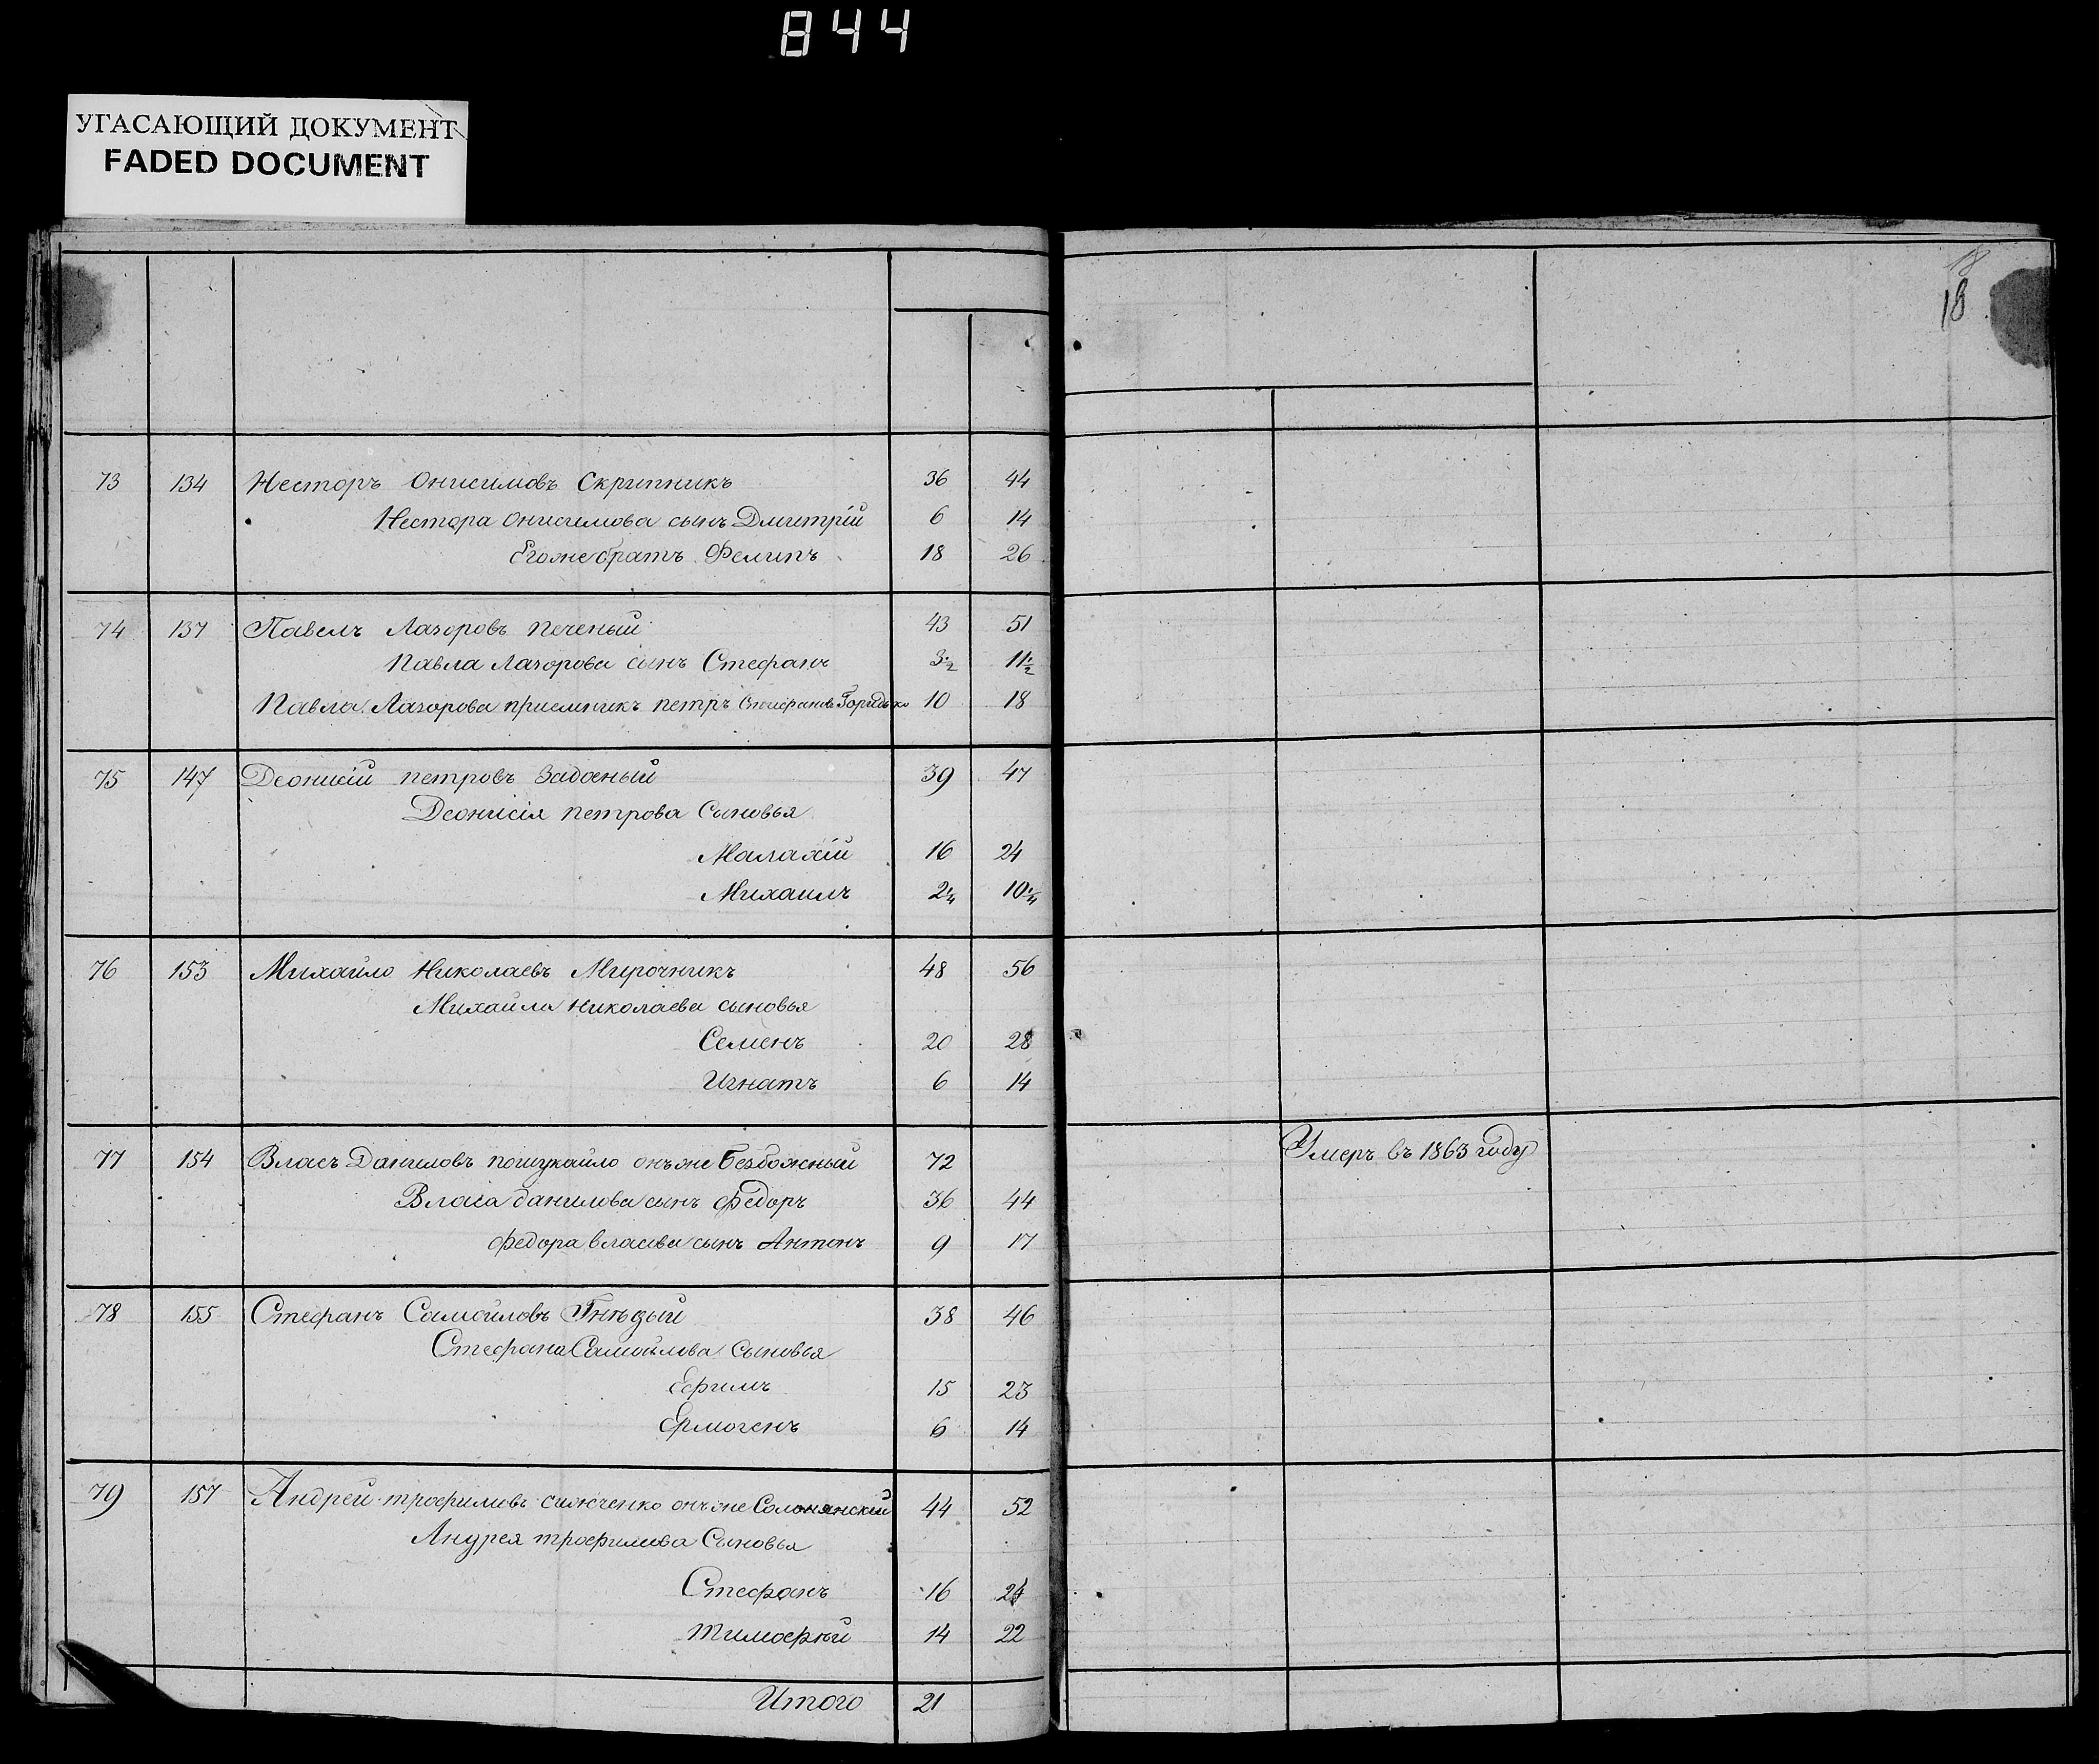 844
УГАСАЮЩИЙ ДОКУМЕНТ
FADED DOCUMENT
18
18
73 134 Несторъ Онисимовъ Скрипникъ 36 44
Нестора Онисимова сынъ Дмитрій 6 14
Егоже братъ Фелипъ 18 26
74 137 Павелъ Лазоровъ Печеный 43 51
Павла Лазорова сынъ Стефанъ 3 1/2 11 1/2
Павла Лазорова приемникъ Петръ 10 18
75 147 Деонисій Петровъ Задоеный 39 47
Деонисія Петрова Сыновья
Малахій 16 24
Михаилъ 2 1/4 10 1/4
76 153 Михайло Николаевъ Мирочникъ 48 56
Михайла Николаева сыновья
Семенъ 20 28
Игнатъ 6 14
77 154 Власъ Даниловъ Пошукайло онъже Безбожный 72 Умеръ въ 1863 году
Власа Данилова сынъ Федоръ 36 44
Федора Власова сынъ Антонъ 9 17
78 155 Стефанъ Самойловъ Гнѣдый 38 46
Стефана Самойлова Сыновья
Ефимъ 15 23
Ермогенъ 6 14
79 157 Андрей Трофимовъ онъже Солонянскій 44 52
Андрея Трофимова Сыновья
Стефанъ 16 24
Тимофѣй 14 22
Итого 21